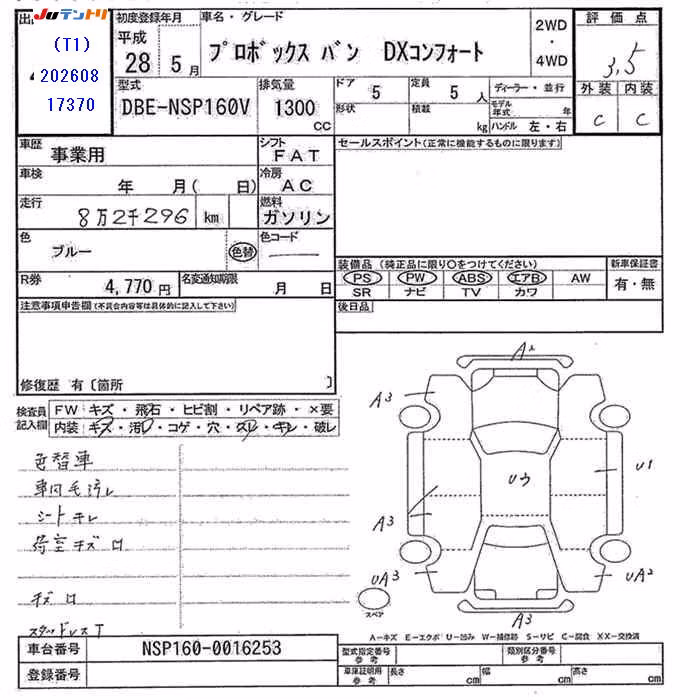 出品
JUテントリ
(T1)
202608
17370
初度登録年月
平成
28 5月
車名・グレード
プロボックス バン DXコンフォート
2WD
・
4WD
評価点
3,5
外装 内装
C C
型式
DBE-NSP160V
排気量
1300
CC
ドア
5
定員
5人
形状
積載
kg
ディーラー・並行
モデル年式 年
ハンドル 左・右
車歴
事業用
シフト
FAT
車検
年 月( 日)
冷房
AC
走行
8万2千296 km
燃料
ガソリン
色
ブルー
色替
色コード
R券
4,770円
名変通知期限
月 日
セールスポイント(正常に機能するものに限ります)
装備品 (純正品に限り○をつけてください)
PS PW ABS エアB AW
SR ナビ TV カワ
新車保証書
有・無
後日品
注意事項申告欄(不具合内容等は具体的に記入して下さい)
修復歴 有〔箇所 〕
検査員
記入欄
FW キズ・飛石・ヒビ割・リペア跡・×要
内装 キズ・汚レ・コゲ・穴・スレ・キレ・破レ
色替車
車内毛汚レ
シートキレ
荷室キズロ
キズロ
スタッドレスT
A2
A3
U1
Uウ
A3
UA3
UA2
A3
スペア
A―キズ E―エクボ U―凹み W―補修跡 S―サビ C―腐食 XX―交換済
車台番号
NSP160-0016253
登録番号
型式指定番号
参考
類別区分番号
参考
車庫証明用
参考
長さ cm
幅 cm
高さ cm